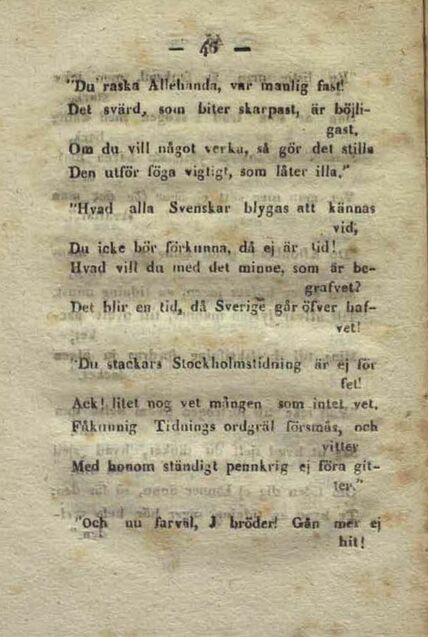 — 46 —
"Du raska Allehanda, var manlig fast!
Det svärd, som biter skarpast, är böjli-
gast.
Om du vill något verka, så gör det stilla
Den utför föga vigtigt, som låter illa."
"Hvad alla Svenskar blygas att kännas
vid,
Du icke bör förkunna, då ej är tid!
Hvad vill du med det minne, som är be-
grafvet?
Det blir en tid, då Sverige går öfver haf-
vet!
"Du stackars Stockholmstidning är ej för
fet!
Ack! litet nog vet mången som intet vet.
Fåkunnig Tidnings ordgräl försmås, och
vitter
Med honom ständigt pennkrig ej föra git-
ter."
"Och nu farväl, J bröder! Gån mer ej
hit!